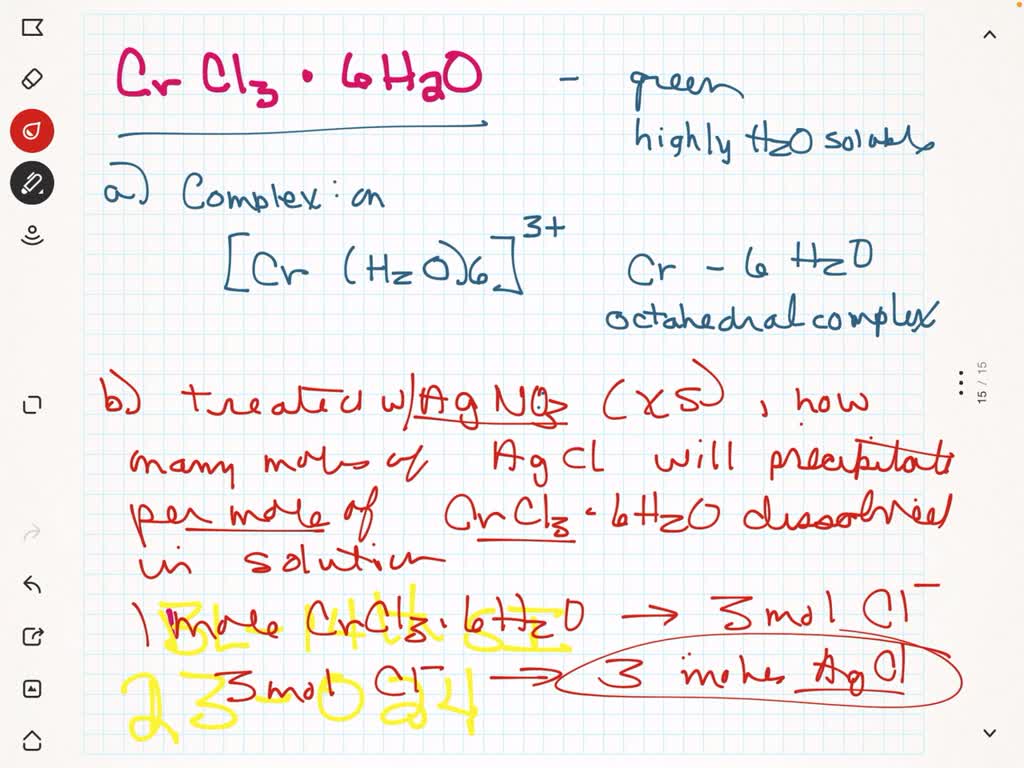 CrCl3 • 6H2O - green
highly H2O soluble
a) Complex ion
[Cr (H2O)6]3+
Cr - 6 H2O
octahedral complex
b) treated w/ AgNO3 (xs), how
many moles of AgCl will precipitate
per mole of CrCl3 • 6H2O dissolved
in solution
1 mole CrCl3 • 6H2O → 3 mol Cl-
3 mol Cl- → 3 moles AgCl
23-024
15 / 15